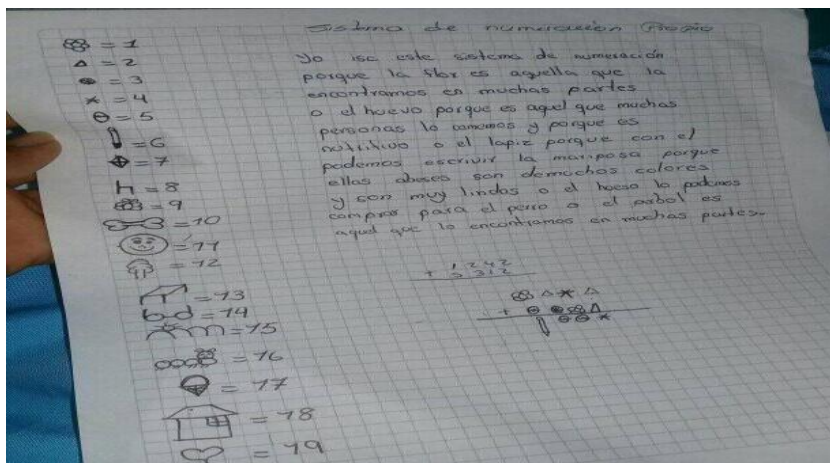 Sistema de numeración Propio
= 1
= 2
= 3
= 4
= 5
= 6
= 7
= 8
= 9
= 10
= 11
= 12
= 13
= 14
= 15
= 16
= 17
= 18
= 19
Yo ise este sistema de numeración
porque la flor es aquella que la
encontramos en muchas partes
o el huevo porque es aquel que muchas
personas lo comemos y porque es
nutritivo o el lapiz porque con el
podemos escrivir la mariposa porque
ellas aboses son demuchos colores
y son muy lindos o el hueso lo podemos
comprar para el perro o el arbol es
aquel que lo encontramos en muchas partes.
1242
+ 5312
+